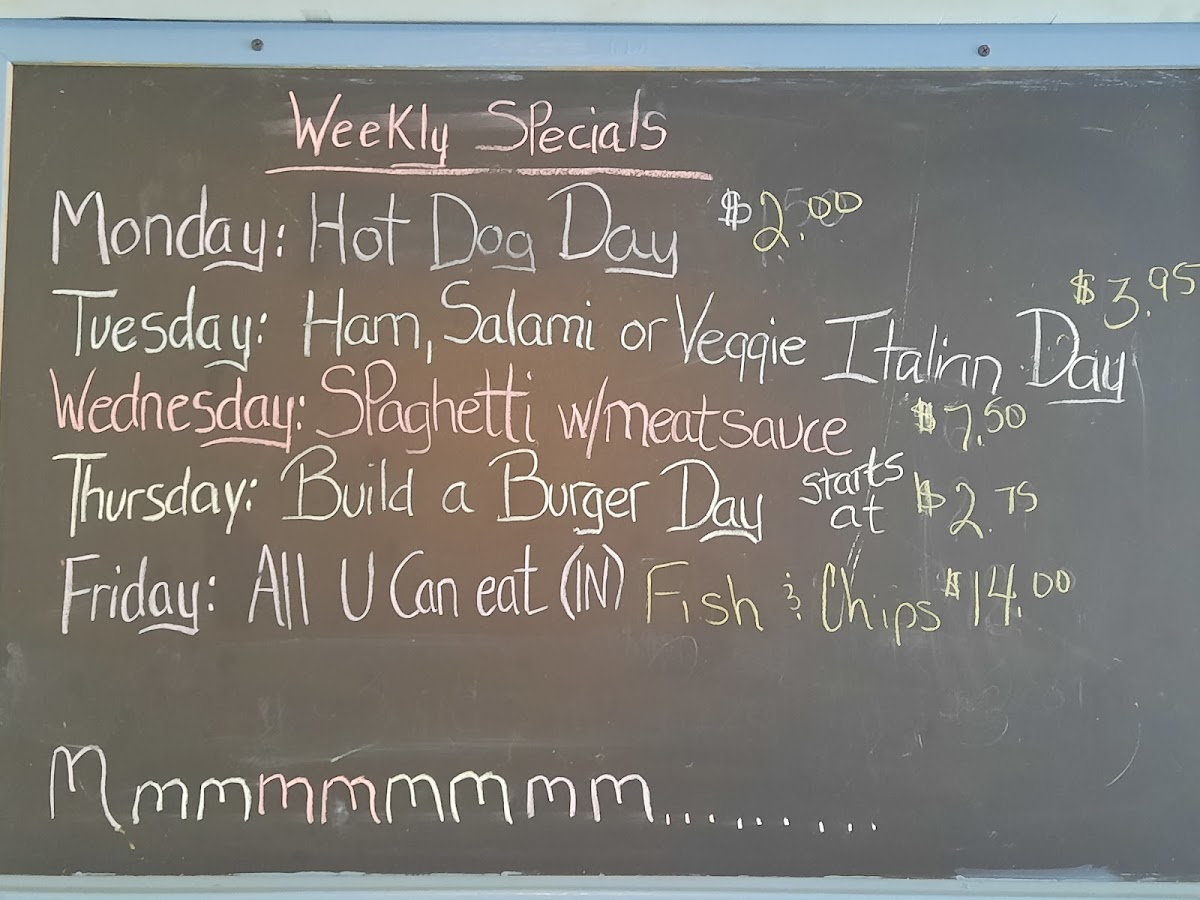 Weekly Specials
Monday: Hot Dog Day $2.00
Tuesday: Ham, Salami or Veggie Italian Day $3.95
Wednesday: Spaghetti w/meatsauce $7.50
Thursday: Build a Burger Day starts at $2.75
Friday: All U Can eat (IN) Fish & Chips $14.00
Mmmmmmmmm.........